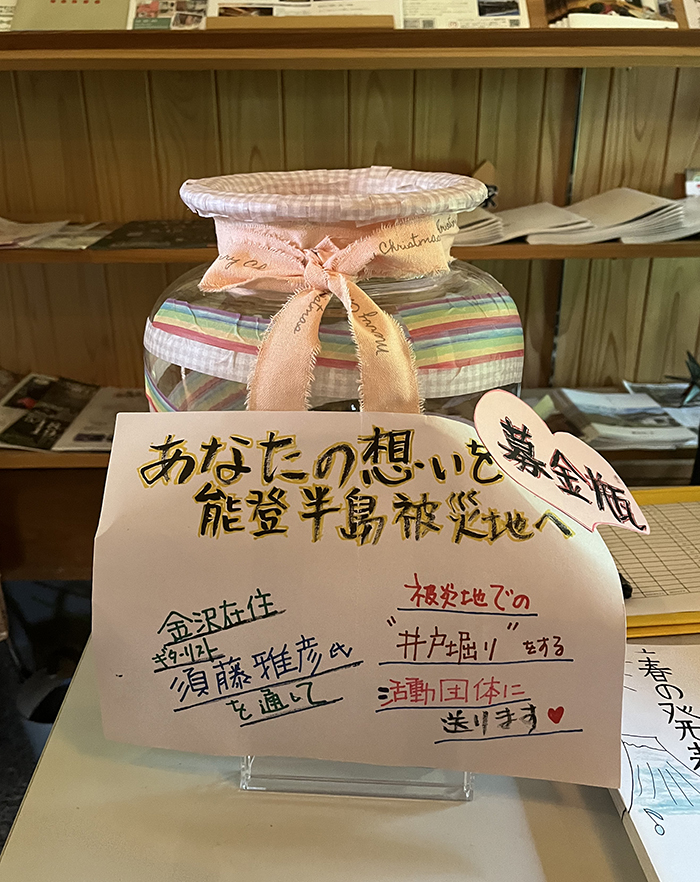 Christmas
あなたの想いを
能登半島被災地へ
募金瓶
金沢在住
ギタリスト
須藤雅彦氏
を通して
被災地での
"井戸堀り"をする
活動団体に
送ります♥
春の